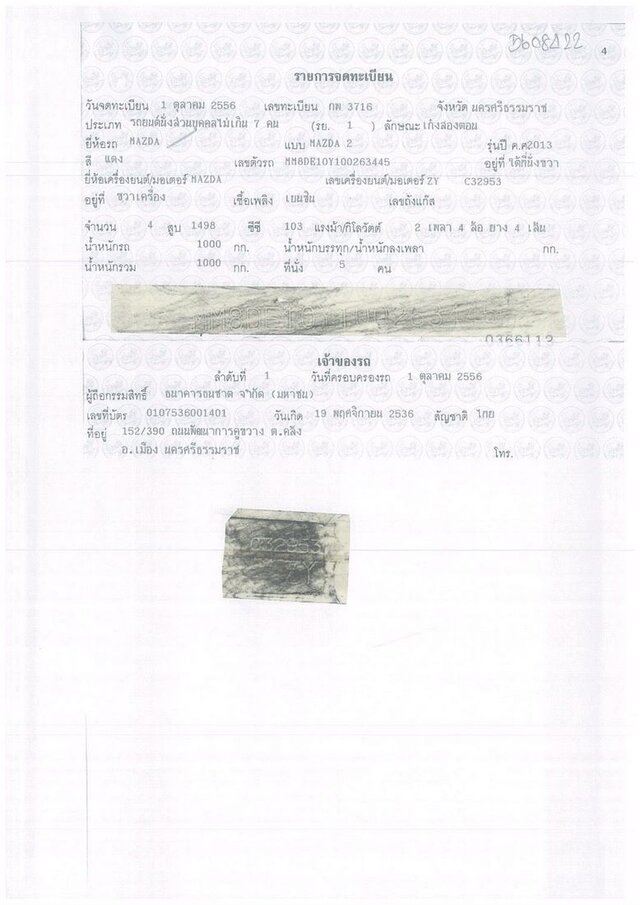 Db08122
4
รายการจดทะเบียน
วันจดทะเบียน 1 ตุลาคม 2556 เลขทะเบียน กพ 3716 จังหวัด นครศรีธรรมราช
ประเภท รถยนต์นั่งส่วนบุคคลไม่เกิน 7 คน (รย. 1 ) ลักษณะ เก๋งสองตอน
ยี่ห้อรถ MAZDA แบบ MAZDA 2 รุ่นปี ค.ศ2013
สี แดง เลขตัวรถ MM8DE10Y100263445 อยู่ที่ ใต้ที่นั่งขวา
ยี่ห้อเครื่องยนต์/มอเตอร์ MAZDA เลขเครื่องยนต์/มอเตอร์ ZY C32953
อยู่ที่ ขวาเครื่อง เชื้อเพลิง เบนซิน เลขถังแก๊ส
จำนวน 4 สูบ 1498 ซีซี 103 แรงม้า/กิโลวัตต์ 2 เพลา 4 ล้อ ยาง 4 เส้น
น้ำหนักรถ 1000 กก. น้ำหนักบรรทุก/น้ำหนักลงเพลา กก.
น้ำหนักรวม 1000 กก. ที่นั่ง 5 คน
0366112
เจ้าของรถ
ลำดับที่ 1 วันที่ครอบครองรถ 1 ตุลาคม 2556
ผู้ถือกรรมสิทธิ์ ธนาคารธนชาต จำกัด (มหาชน)
เลขที่บัตร 0107536001401 วันเกิด 19 พฤศจิกายน 2536 สัญชาติ ไทย
ที่อยู่ 152/390 ถนนพัฒนาการคูขวาง ต.คลัง
อ.เมือง นครศรีธรรมราช โทร.
C32953
ZY